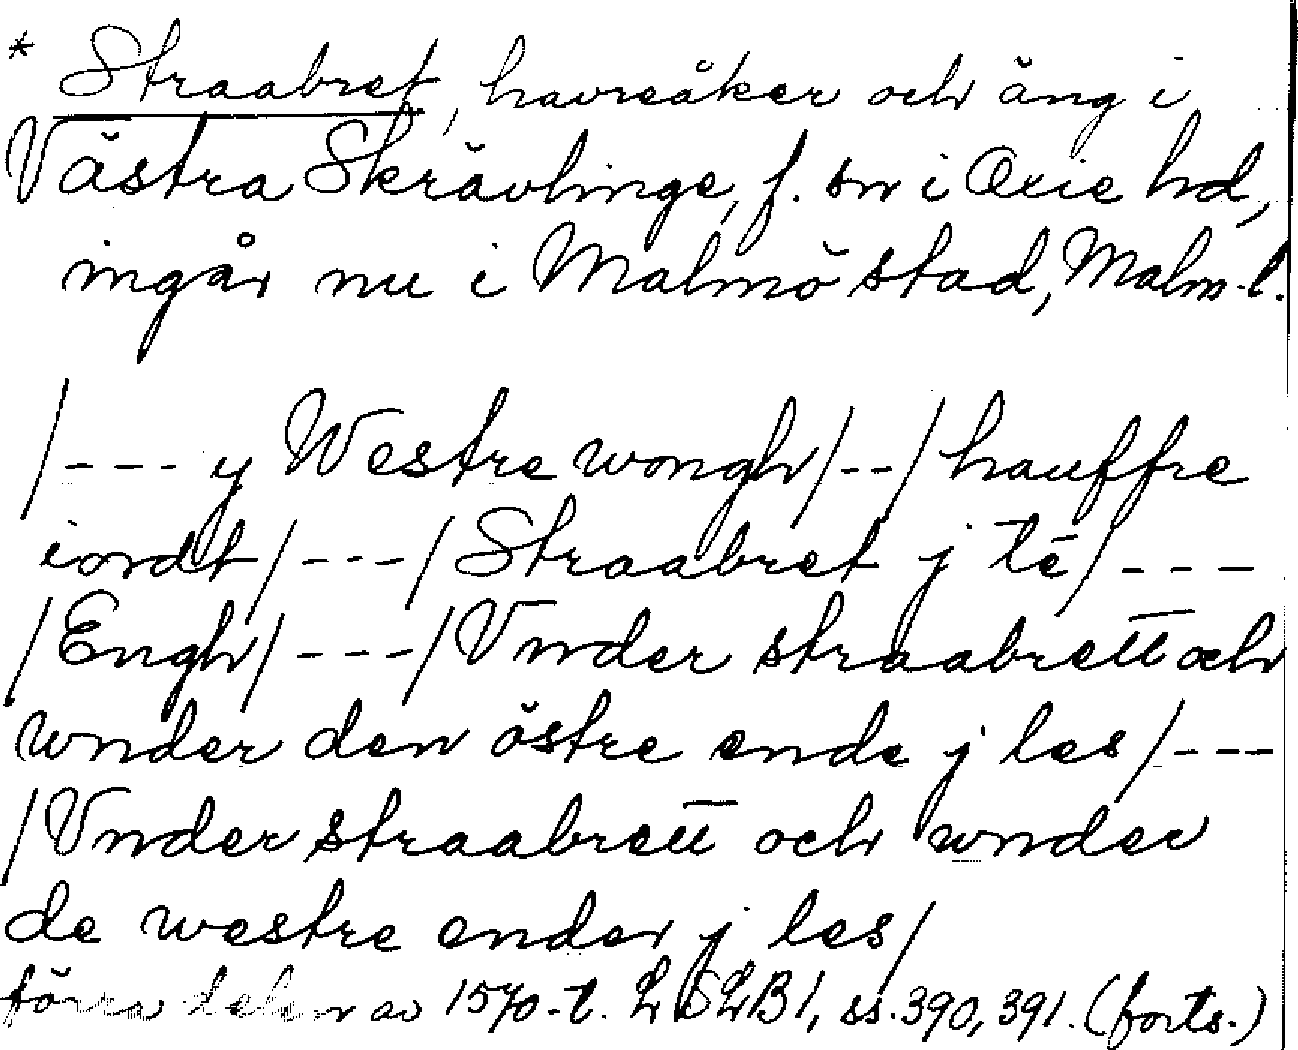 * Straabret, havreåker och äng i
Västra Skrävlinge, f. sn i Oxie hd,
ingår nu i Malmö stad, Malm. l.
/--- y Westre wongh/--/hauffre
iordt/---/Straabret j tē/---
/Engh/---/Vnder straabrett och
wnder den östre ende j les/---
/Vnder straabrett och wnder
de westre ender j les/
förra delen av 1570-t. LSLB 1, ss. 390, 391. (forts.)